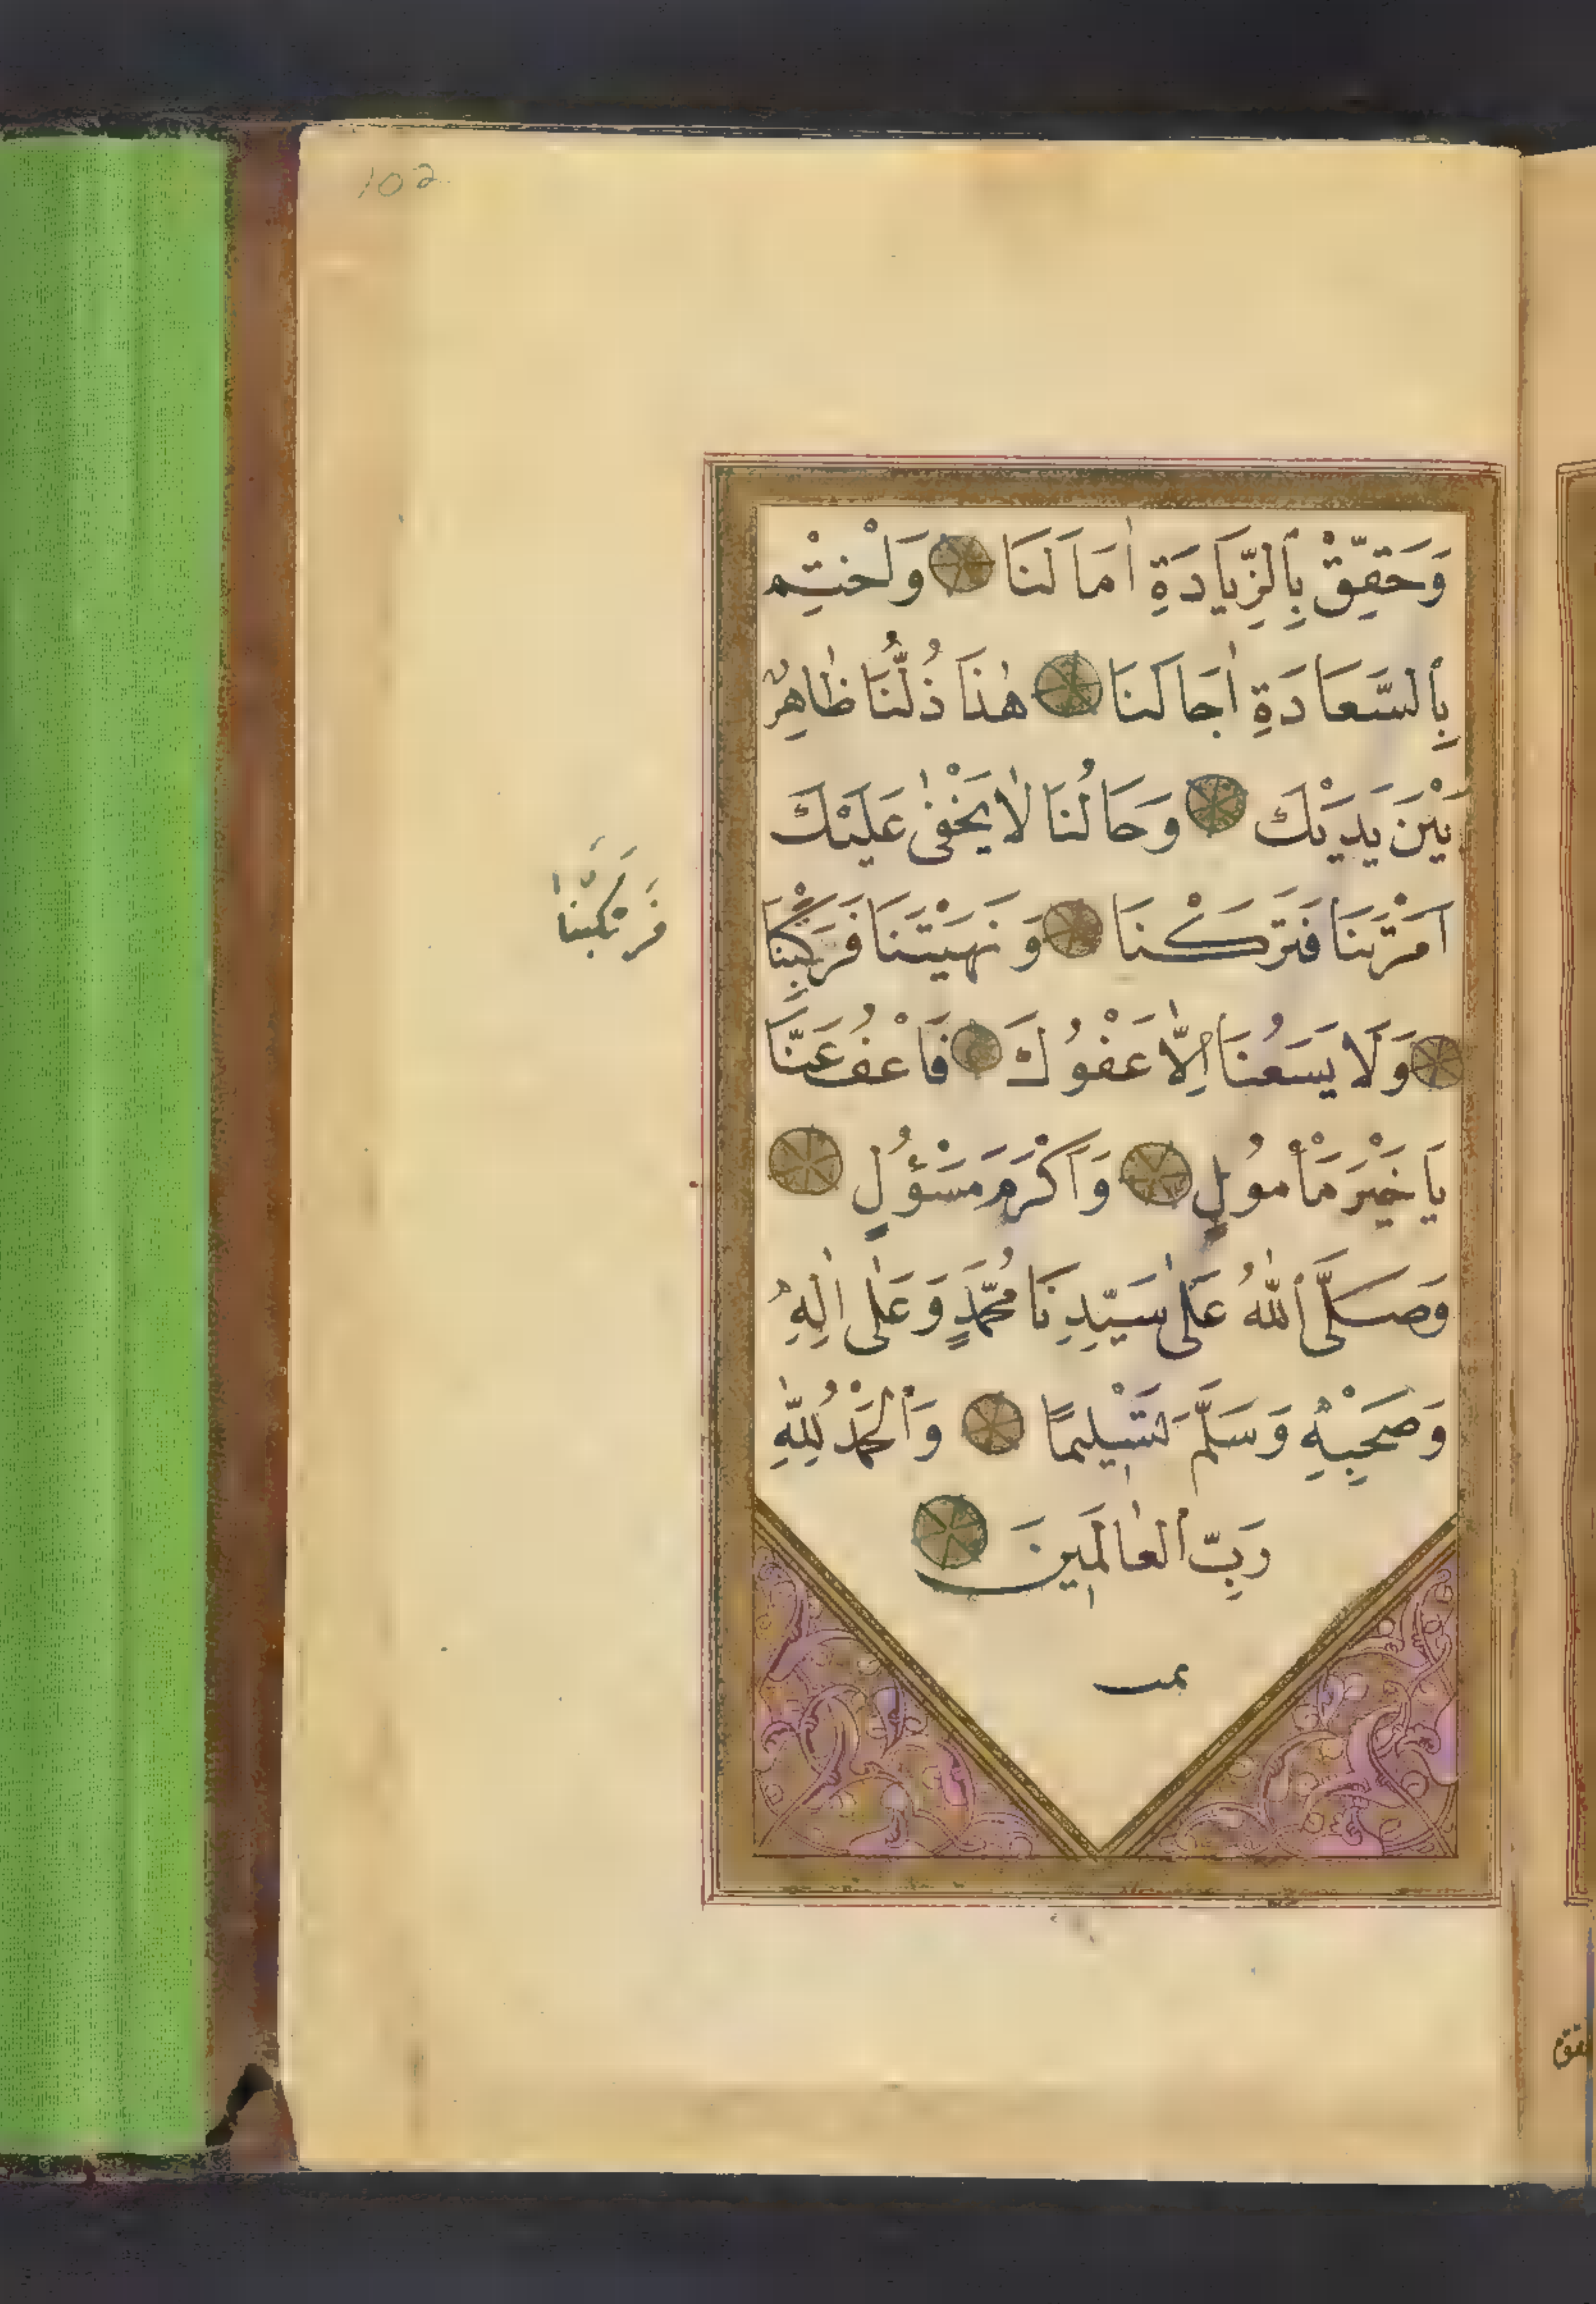 102
وَحَقِّقْ بِالزِّيَادَةِ اٰمَالَنَا وَاخْتِمْ
بِالسَّعَادَةِ اٰجَالَنَا هٰذَا ذُلُّنَا ظَاهِرٌ
بَيْنَ يَدَيْكَ وَحَالُنَا لَا يَخْفٰى عَلَيْكَ
اَمَرْتَنَا فَتَرَكْنَا وَنَهَيْتَنَا فَرَكِبْنَا
وَلَا يَسَعُنَا اِلَّا عَفْوُكَ فَاعْفُ عَنَّا
يَا خَيْرَ مَأْمُولٍ وَاَكْرَمَ مَسْؤُلٍ
وَصَلَّى اللّٰهُ عَلٰى سَيِّدِنَا مُحَمَّدٍ وَعَلٰى اٰلِهِ
وَصَحْبِهِ وَسَلَّمَ تَسْلِيمًا وَالْحَمْدُ لِلّٰهِ
رَبِّ الْعَالَمِينَ
تمت